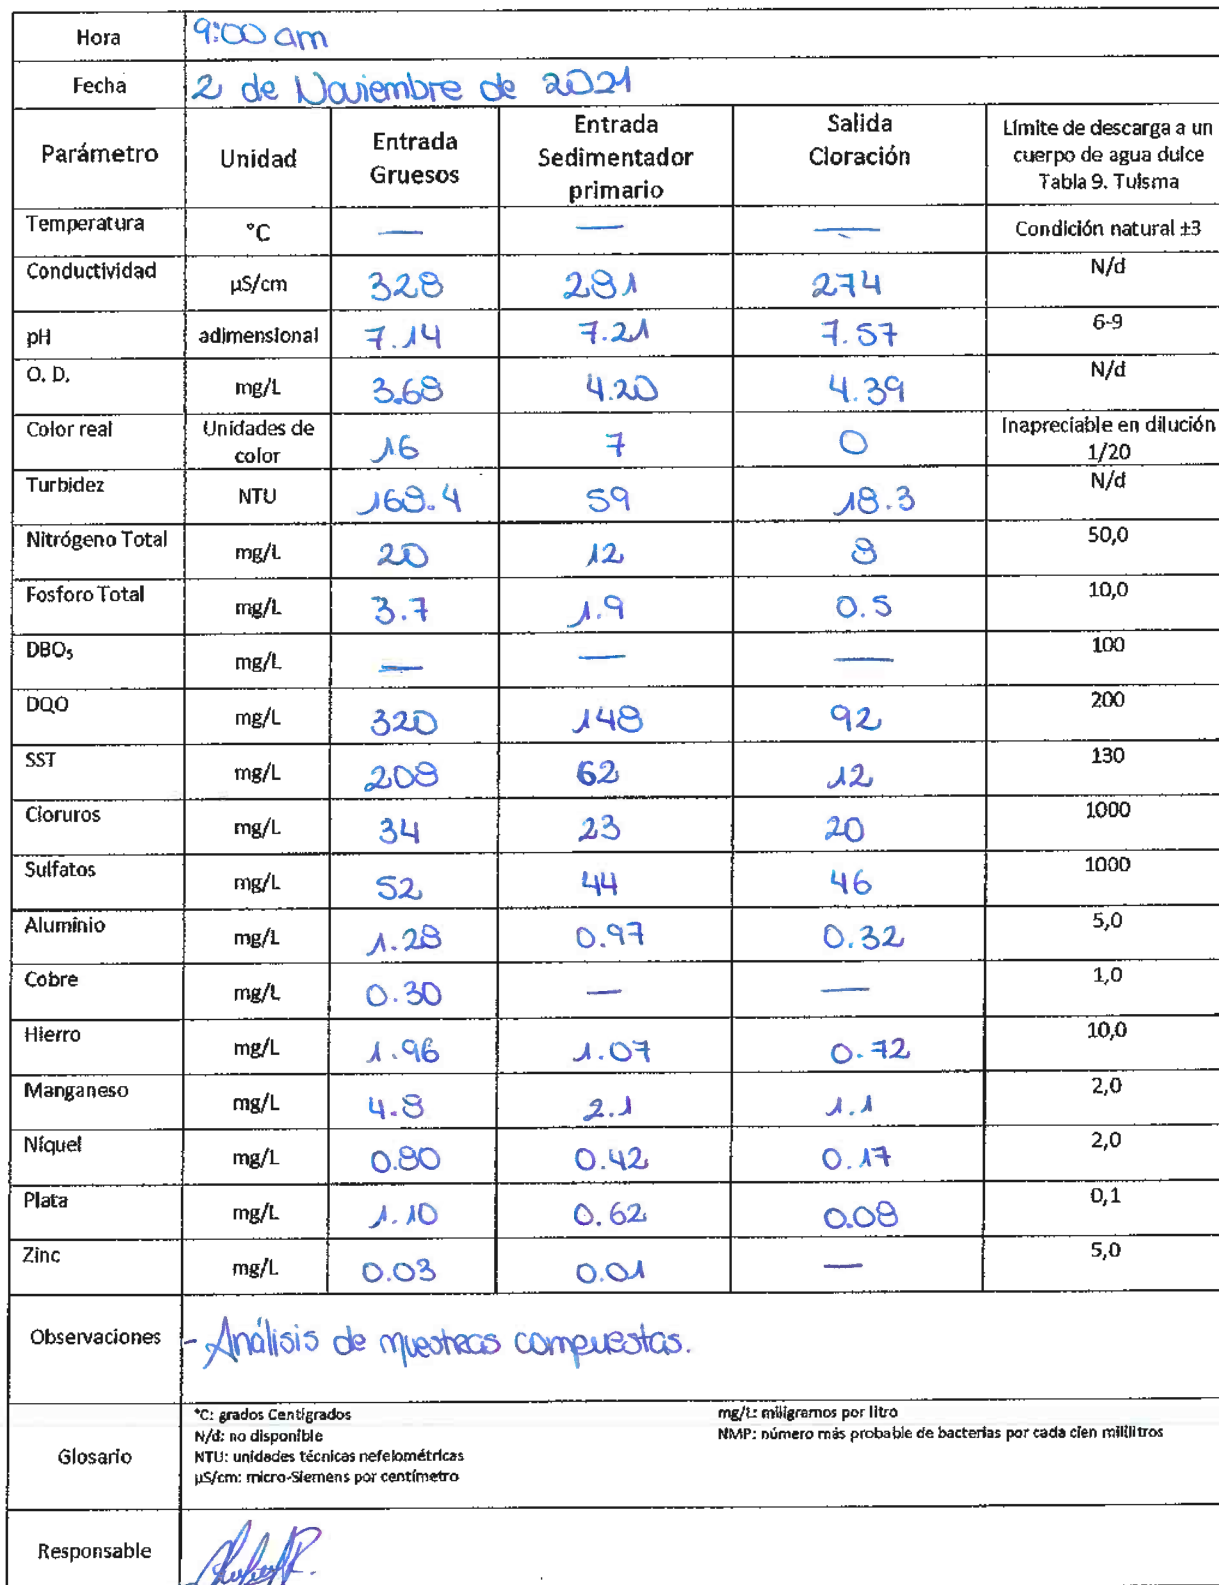 Hora 9:00 am
Fecha 2 de Noviembre de 2021
Parámetro Unidad Entrada Gruesos Entrada Sedimentador primario Salida Cloración Límite de descarga a un cuerpo de agua dulce Tabla 9. Tulsma
Temperatura °C — — — Condición natural ±3
Conductividad µS/cm 328 281 274 N/d
pH adimensional 7.14 7.21 7.57 6-9
O. D. mg/L 3.68 4.20 4.39 N/d
Color real Unidades de color 16 7 0 Inapreciable en dilución 1/20
Turbidez NTU 168.4 59 18.3 N/d
Nitrógeno Total mg/L 20 12 8 50,0
Fosforo Total mg/L 3.7 1.9 0.5 10,0
DBO₅ mg/L — — — 100
DQO mg/L 320 148 92 200
SST mg/L 208 62 12 130
Cloruros mg/L 34 23 20 1000
Sulfatos mg/L 52 44 46 1000
Aluminio mg/L 1.28 0.97 0.32 5,0
Cobre mg/L 0.30 — — 1,0
Hierro mg/L 1.96 1.07 0.72 10,0
Manganeso mg/L 4.8 2.1 1.1 2,0
Níquel mg/L 0.80 0.42 0.17 2,0
Plata mg/L 1.10 0.62 0.08 0,1
Zinc mg/L 0.03 0.01 — 5,0
Observaciones - Análisis de muestras compuestas.
Glosario
°C: grados Centígrados
N/d: no disponible
NTU: unidades técnicas nefelométricas
µS/cm: micro-Siemens por centímetro
mg/L: miligramos por litro
NMP: número más probable de bacterias por cada cien mililitros
Responsable